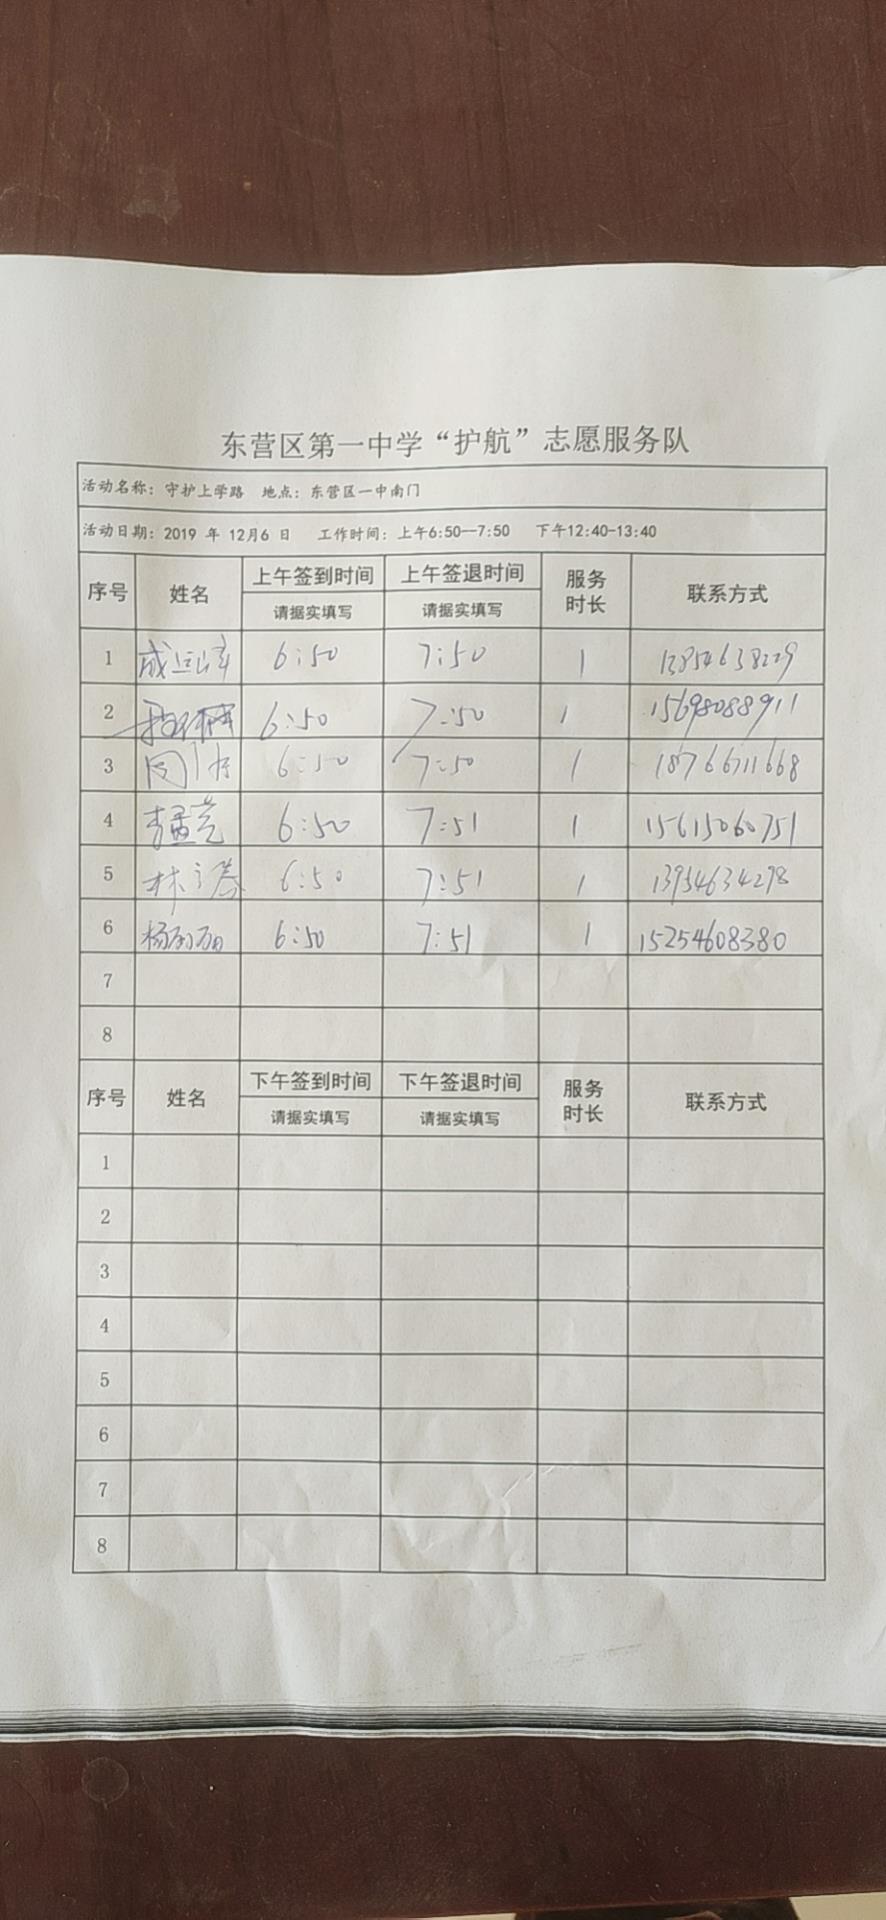 东营区第一中学“护航”志愿服务队
活动名称：守护上学路 地点：东营区一中南门
活动日期：2019 年 12月6 日 工作时间：上午6:50--7:50 下午12:40-13:40
序号 姓名 上午签到时间 上午签退时间 服务时长 联系方式
请据实填写 请据实填写
1 6:50 7:50 1 13854638229
2 6:50 7:50 1 15698088911
3 6:50 7:50 1 18766711668
4 李孟芝 6:50 7:51 1 15615060751
5 6:50 7:51 1 13954634278
6 杨丽丽 6:50 7:51 1 15254608380
7
8
序号 姓名 下午签到时间 下午签退时间 服务时长 联系方式
请据实填写 请据实填写
1
2
3
4
5
6
7
8